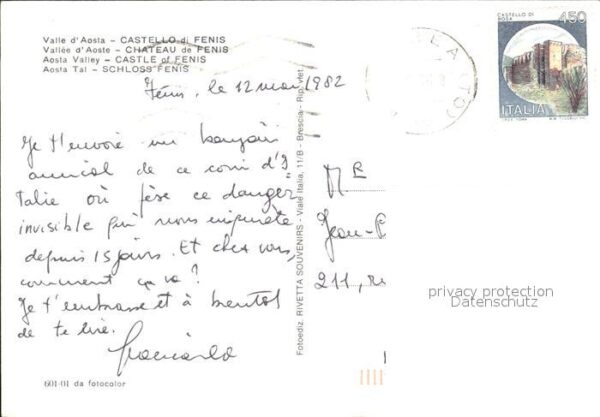 Valle d'Aosta - CASTELLO di FENIS
Vallée d'Aoste - CHATEAU de FENIS
Aosta Valley - CASTLE of FENIS
Aosta Tal - SCHLOSS FENIS
Fénis, le 12 mai 1982
Je t'envoie un bonjour
amical de ce coin d'I
talie où pèse ce danger
invisible qui nous inquiète
depuis 15 jours. Et chez vous,
comment ça va?
Je t'embrasse et à bientôt
de te lire.
601-01 da fotocolor
Fotoediz. RIVETTA SOUVENIRS - Viale Italia, 11/B - Brescia - Rip. viet.
CASTELLO DI
ROSA
450
ITALIA
Mr
Jean-
211, r
privacy protection
Datenschutz